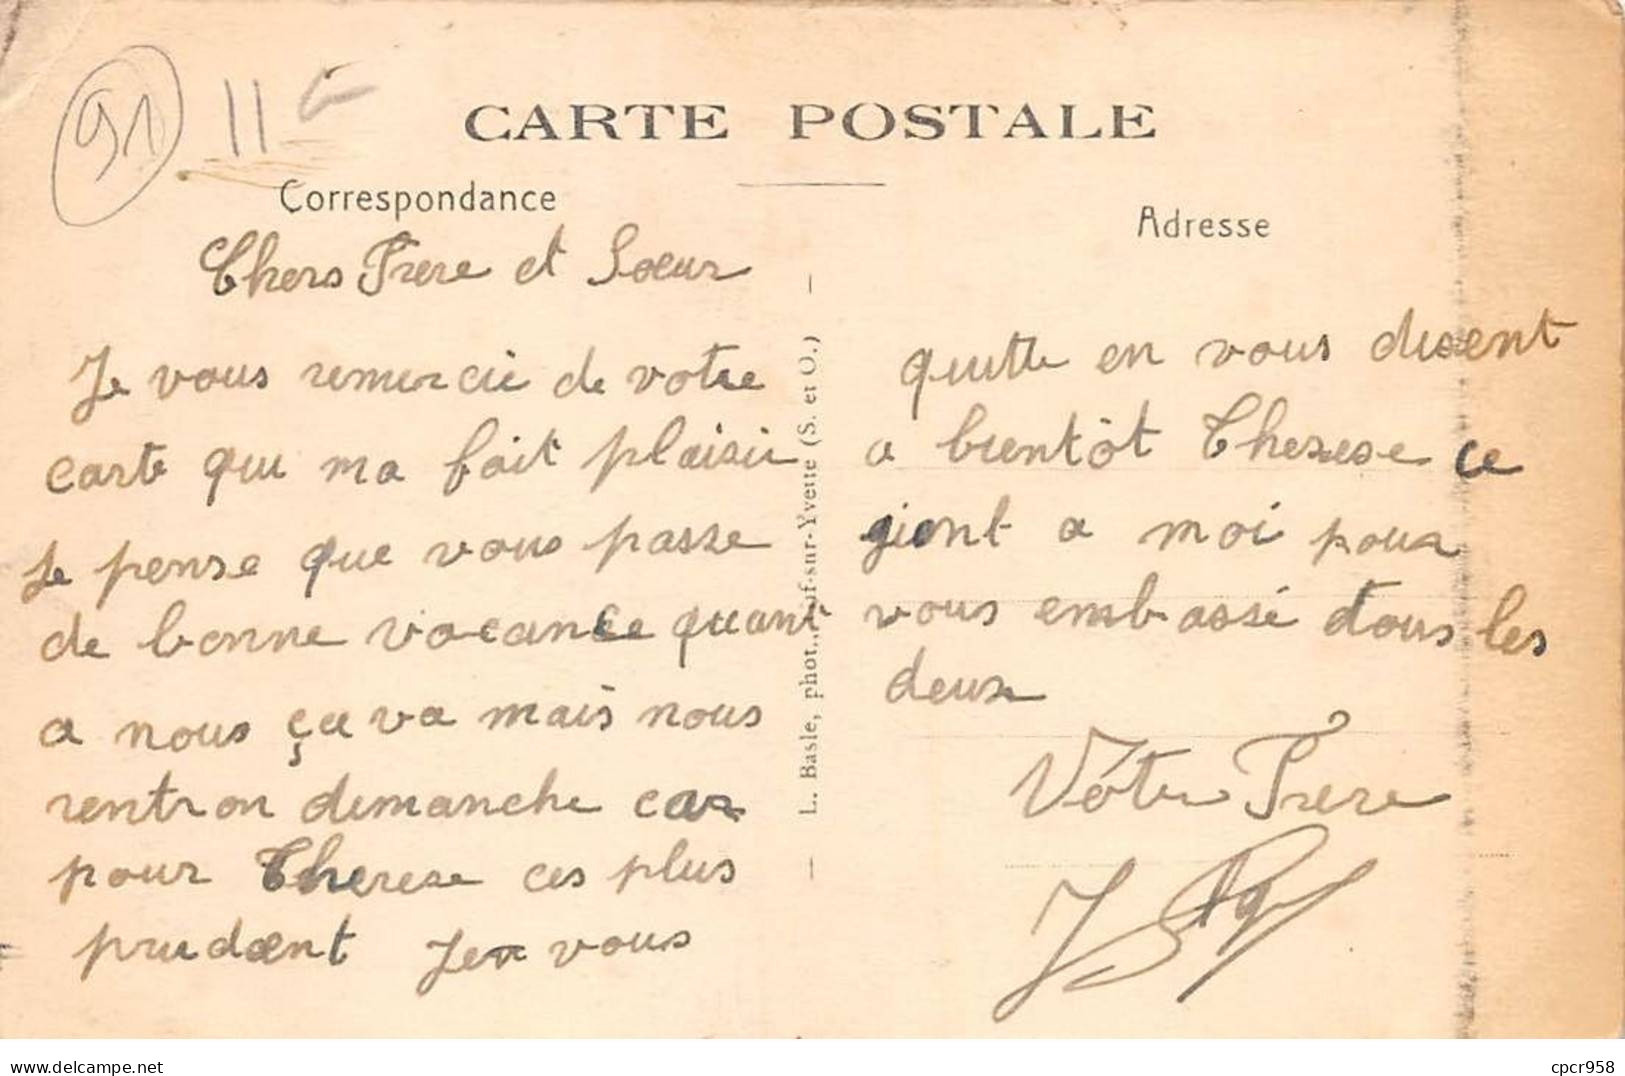 91 11
CARTE POSTALE
Correspondance
Adresse
Chers Frere et Soeur
Je vous remercie de votre
carte qui ma fait plaisir
Je pense que vous passe
de bonne vacance quant
a nous ça va mais nous
rentron dimanche car
pour Therese ces plus
prudent Jen vous
L. Basle, phot., -sur-Yvette (S. et O.)
quitte en vous disent
a bientôt Therese ce
gient a moi pour
vous embassé tous les
deux
Vôtre Frere
www.delcampe.net
cpcr958